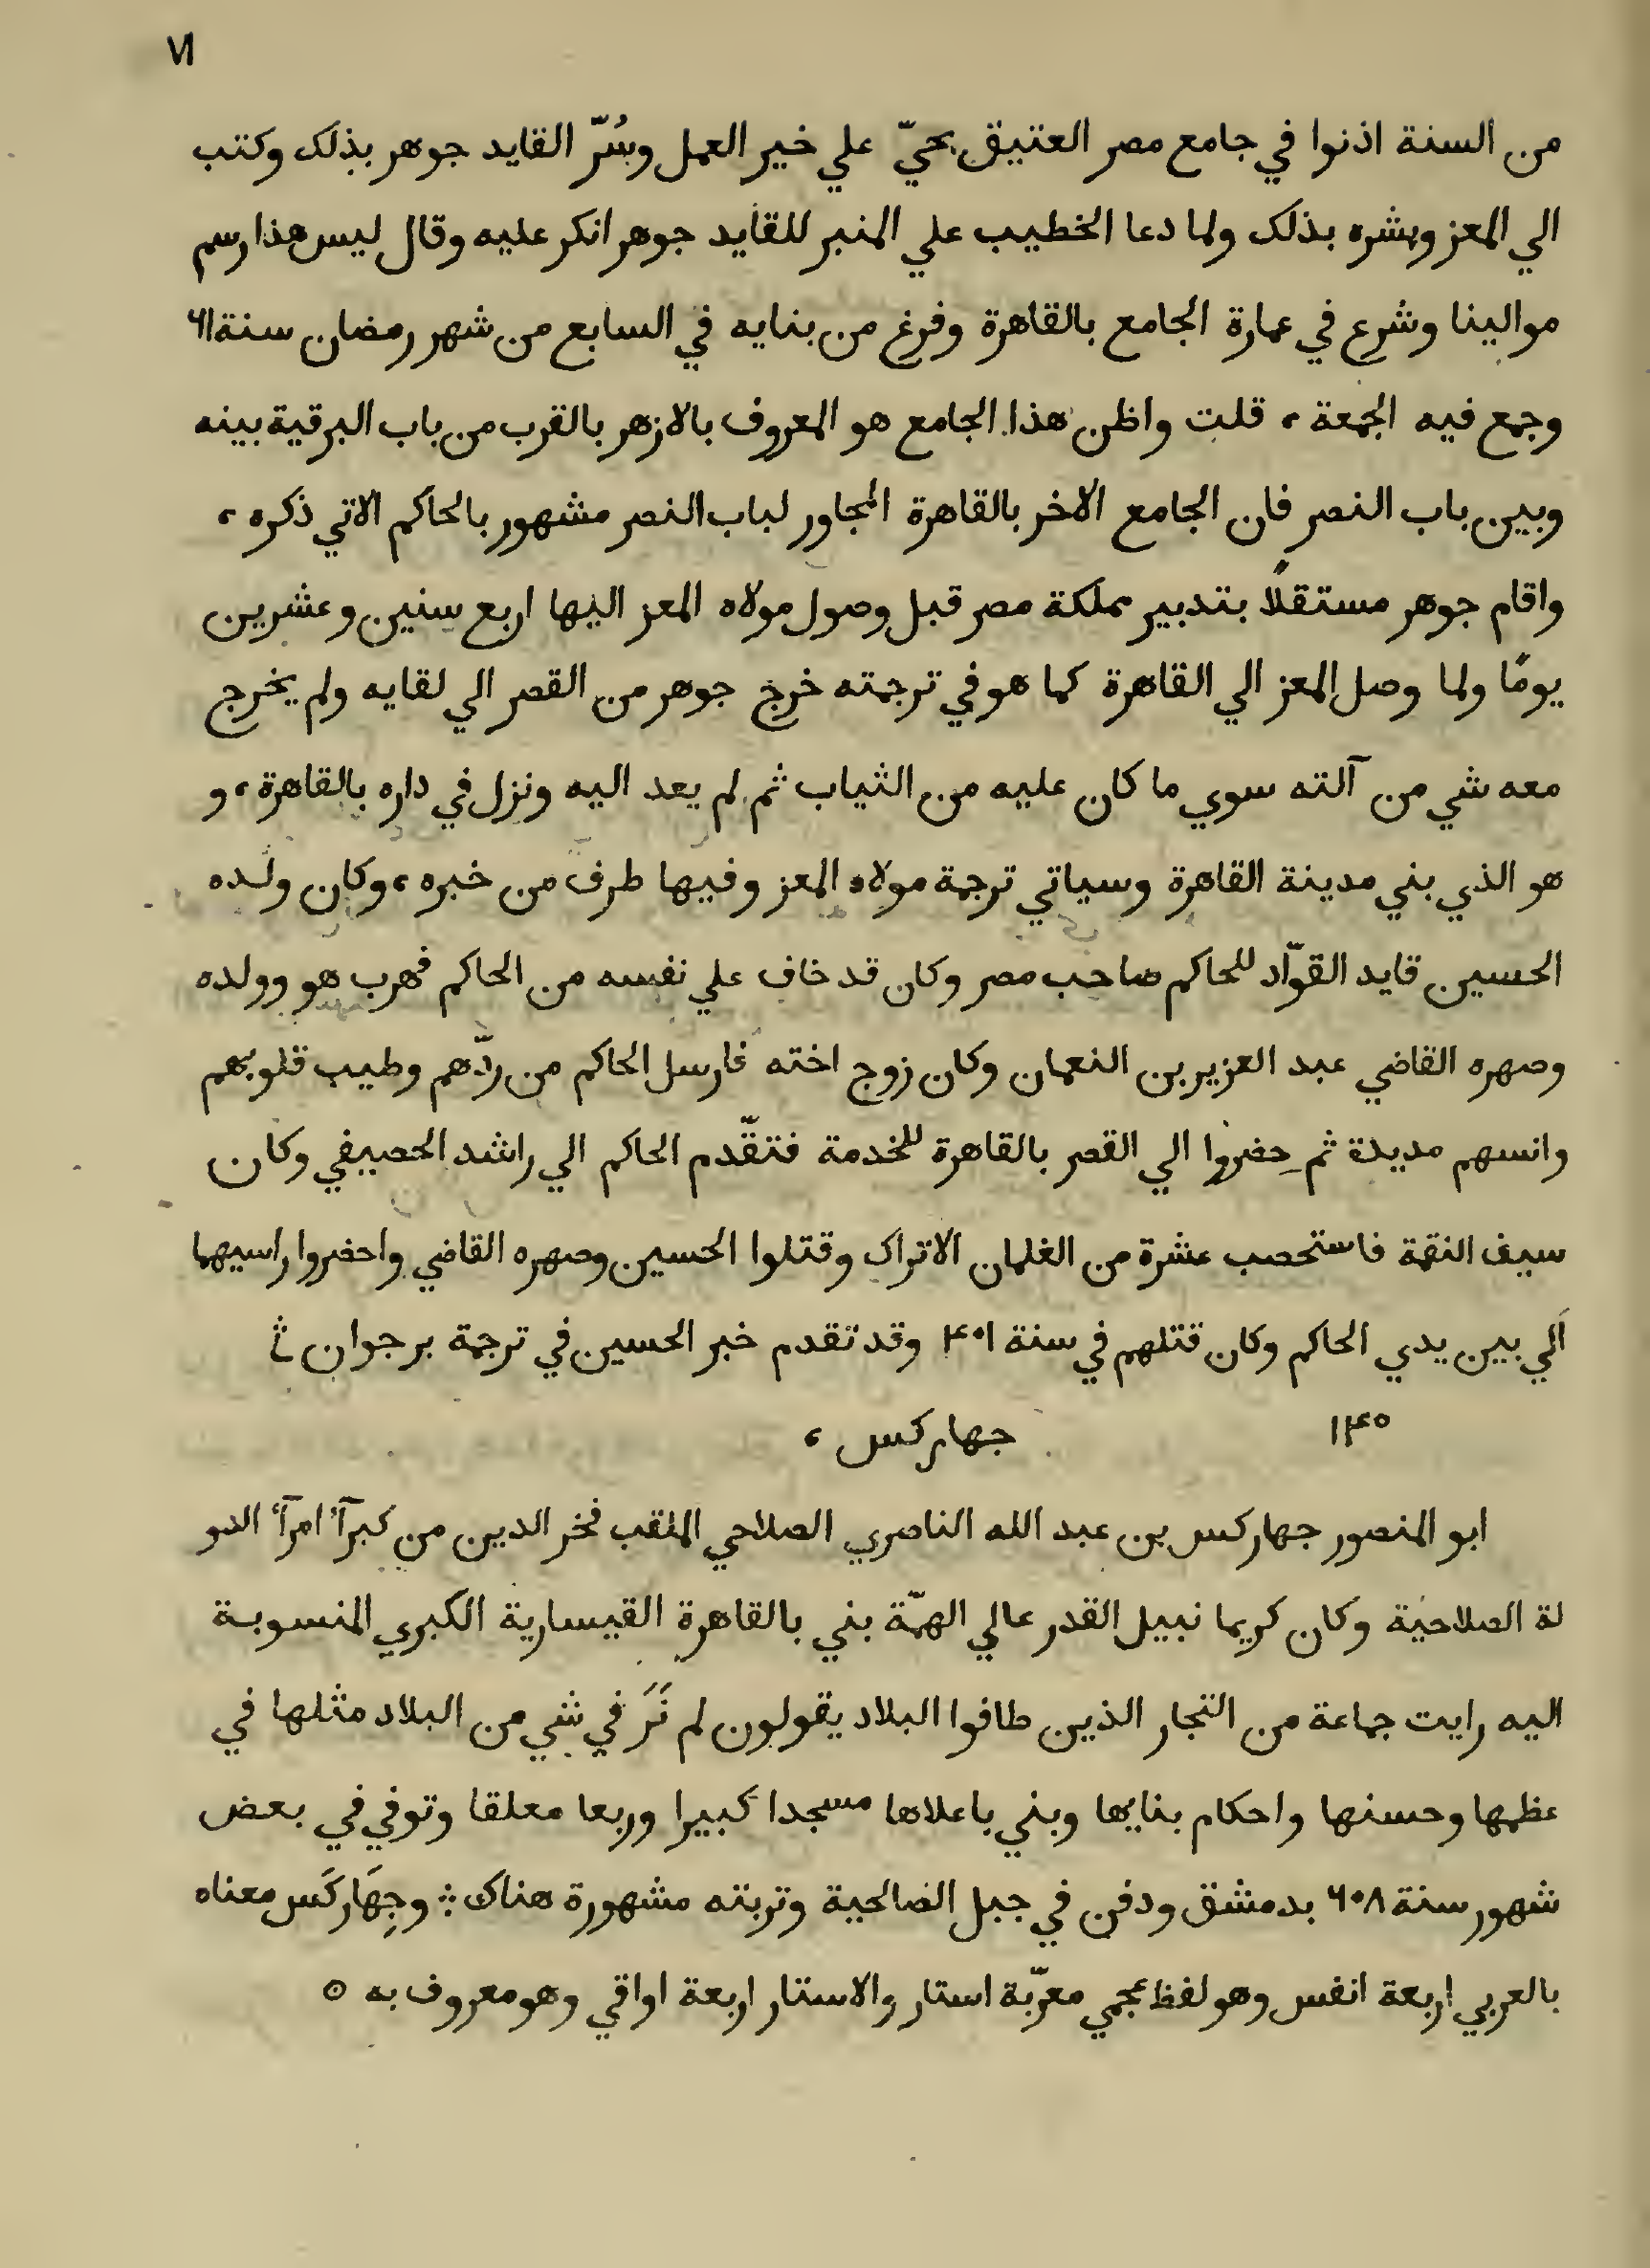 ٧١
من السنة اذنوا في جامع مصر العتيق بحيّ علي خير العمل وسُرّ القايد جوهر بذلك وكتب
الي المعز وبشره بذلك ولما دعا الخطيب علي المنبر للقايد جوهر انكر عليه وقال ليس هذا رسم
موالينا وشرع في عمارة الجامع بالقاهرة وفرغ من بنايه في السابع من شهر رمضان سنة ٦١
وجمع فيه الجمعة ، قلت واظن هذا الجامع هو المعروف بالازهر بالقرب من باب البرقية بينه
وبين باب النصر فان الجامع الاخر بالقاهرة المجاور لباب النصر مشهور بالحاكم الاتي ذكره ،
واقام جوهر مستقلًا بتدبير مملكة مصر قبل وصول مولاه المعز اليها اربع سنين وعشرين
يومًا ولما وصل المعز الي القاهرة كما هو في ترجمته خرج جوهر من القصر الي لقايه ولم يخرج
معه شي من آلته سوي ما كان عليه من الثياب ثم لم يعد اليه ونزل في داره بالقاهرة ، و
هو الذي بني مدينة القاهرة وسياتي ترجمة مولاه المعز وفيها طرف من خبره ، وكان ولده
الحسين قايد القوّاد للحاكم صاحب مصر وكان قد خاف علي نفسه من الحاكم فهرب هو وولده
وصهره القاضي عبد العزيز بن النعمان وكان زوج اخته فارسل الحاكم من ردّهم وطيب قلوبهم
وانسهم مديدة ثم حضروا الي القصر بالقاهرة للخدمة فتقّدم الحاكم الي راشد الحصيفي وكان
سيف النقمة فاستحصب عشرة من الغلمان الاتراك وقتلوا الحسين وصهره القاضي واحضروا راسيهما
الي بين يدي الحاكم وكان قتلهم في سنة ۴۰۱ وقد تقدم خبر الحسين في ترجمة برجوان ؞
۱۴۵ جهاركس ،
ابو المنصور جهاركس بن عبد الله الناصري الصلاحي الملقب فخر الدين من كبرآء امرآء الدو
لة الصلاحية وكان كريما نبيل القدر عالي الهمّة بني بالقاهرة القيسارية الكبري المنسوبة
اليه رايت جماعة من التجار الذين طافوا البلاد يقولون لم نَرَ في شي من البلاد مثلها في
عظمها وحسنها واحكام بنايها وبني باعلاها مسجدا كبيرا وربعا معلقا وتوفي في بعض
شهور سنة ٦٠٨ بدمشق ودفن في جبل الصالحية وتربته مشهورة هناك ؞ وجِهَاركَس معناه
بالعربي اربعة انفس وهو لفظ عجمي معرّبة استار والاستار اربعة اواقي وهو معروف به ⊙